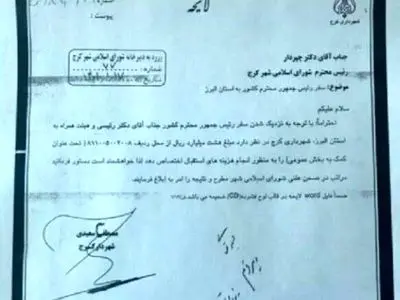 لایحه
پیوست :
شهرداری کرج
ورود به دبیرخانه شورای اسلامی شهر کرج
شماره:
جناب آقای دکتر چپردار
رئیس محترم شورای اسلامی شهر کرج
موضوع: سفر رئیس جمهور محترم کشور به استان البرز
سلام علیکم
احتراماً، با توجه به نزدیک شدن سفر رئیس جمهور محترم کشور جناب آقای دکتر رئیسی و هیئت همراه به
استان البرز، شهرداری کرج در نظر دارد مبلغ هشت میلیارد ریال از محل ردیف تحت عنوان
کمک به بخش عمومی) را به منظور انجام هزینه های استقبال اختصاص دهد لذا خواهشمند است دستور فرمائید
مراتب در صحن علنی شورای اسلامی شهر مطرح و نتیجه را امر به ابلاغ فرمایند.
ضمناً فایل word لایحه در قالب لوح فشرده(CD) ضمیمه می باشد.
مصطفی سعیدی
شهردار کرج